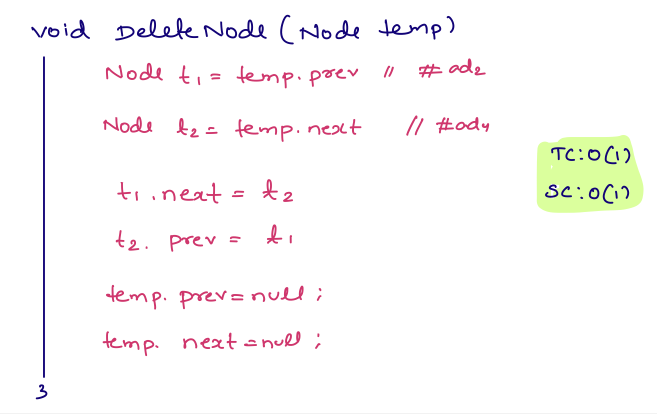 void DeleteNode (Node temp)
Node t1 = temp.prev // #ad2
Node t2 = temp.next // #ad4
TC:O(1)
SC:O(1)
t1.next = t2
t2.prev = t1
temp.prev=null;
temp.next=null;
}